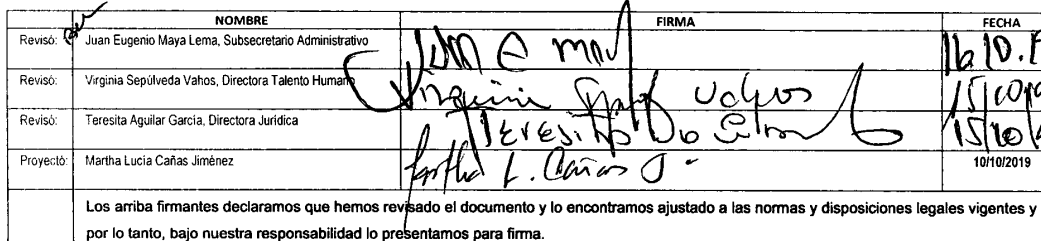 NOMBRE FIRMA FECHA
Revisó: Juan Eugenio Maya Lema, Subsecretario Administrativo
Revisó: Virginia Sepúlveda Vahos, Directora Talento Humano Virginia Vahos
Revisó: Teresita Aguilar García, Directora Jurídica Teresita
Proyectó: Martha Lucía Cañas Jiménez Martha L. Cañas J. 10/10/2019
Los arriba firmantes declaramos que hemos revisado el documento y lo encontramos ajustado a las normas y disposiciones legales vigentes y
por lo tanto, bajo nuestra responsabilidad lo presentamos para firma.